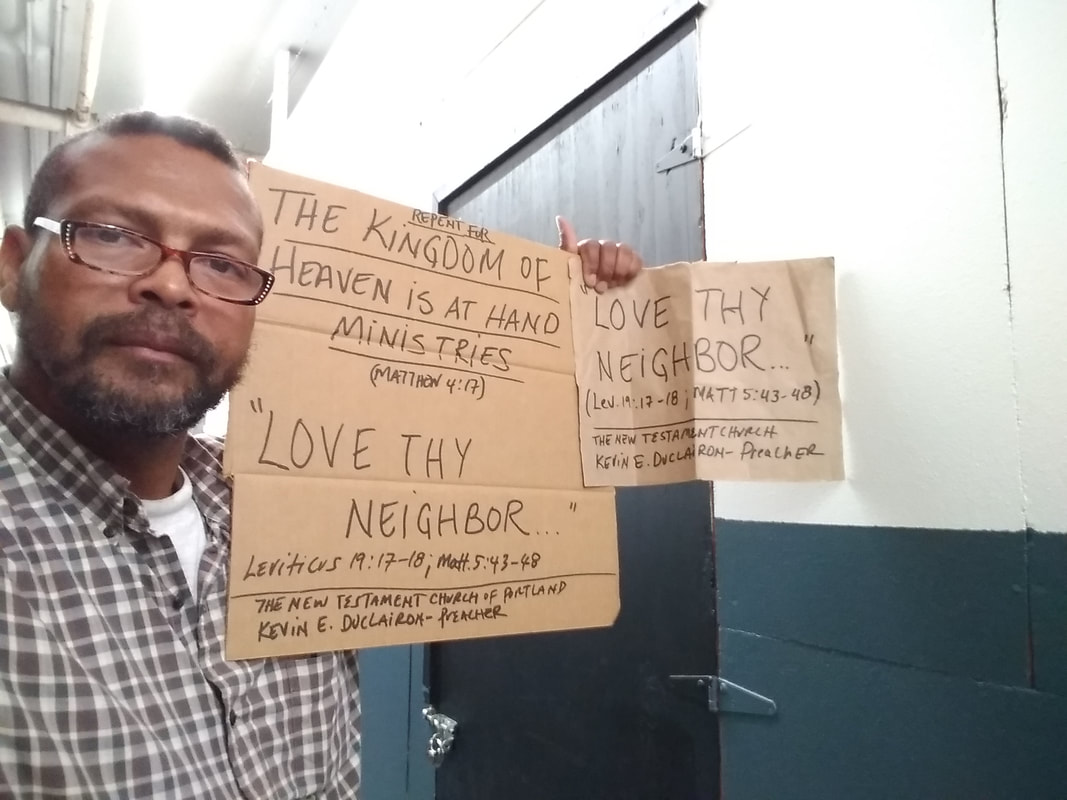 REPENT FOR
THE KiNGDOM OF
HEAVEN iS AT HAND
MiNiSTRiES
(MATTHEW 4:17)
"LOVE THY
NEiGHBOR..."
Leviticus 19:17-18; Matt. 5:43-48
THE NEW TESTAMENT CHURCH OF PORTLAND
KEVIN E. DUCLAIRON- PREACHER
"LOVE THY
NEiGHBOR..."
(Lev. 19:17-18; MATT 5:43-48)
THE NEW TESTAMENT CHURCH
KEVIN E. DUCLAIRON- PreacHER